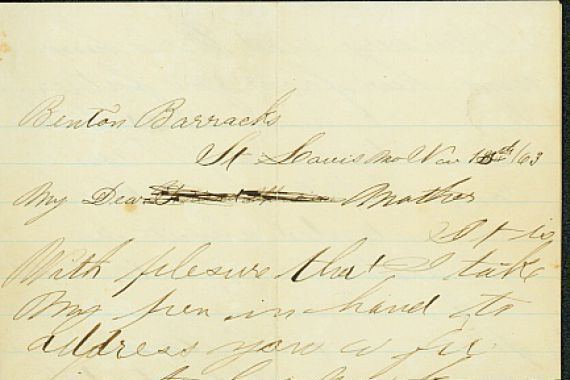 Benton Barracks
St Louis Mo Nov th/63
My Dear Mother
It is
With plesure that I take
My pen in hand to
address you a few